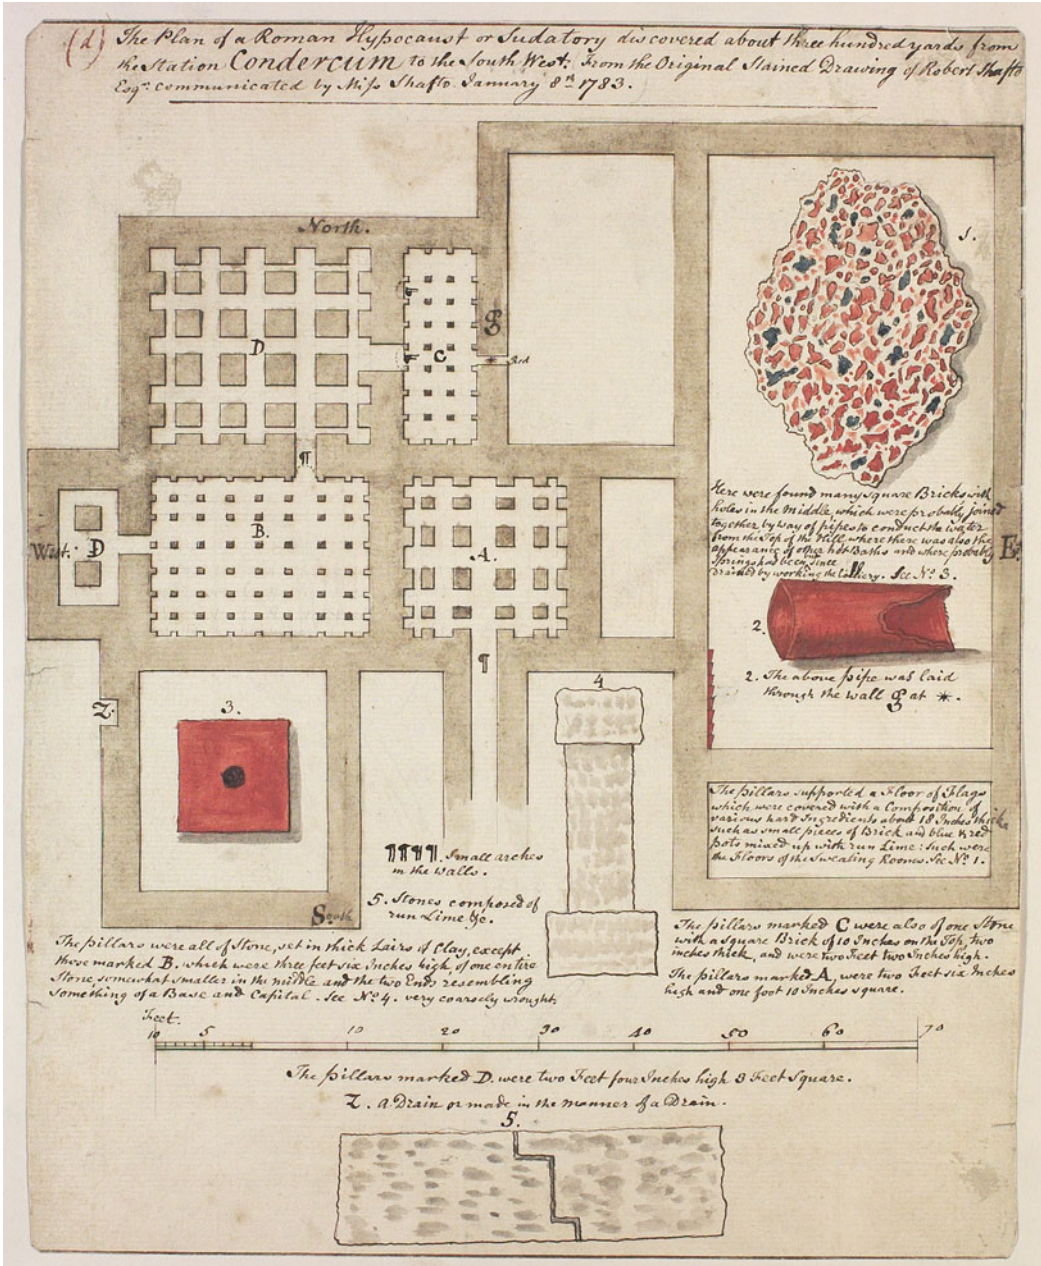 (d) The Plan of a Roman Hypocaust or Sudatory discovered about three hundred yards from
the Station Condercum to the South West. From the Original Stained Drawing of Robert Shafto
Esqr. communicated by Miss Shafto January 8th 1783.
North.
1.
g
D
C
Red
Here were found many square Bricks with
holes in the Middle, which were probably joined
together by way of pipes to conduct the water
from the Top of the Hill, where there was also the
appearance of other hot Baths and where probably
Springs had been, but since
drained by working the Colliery. See No. 3.
E.
¶
B.
A.
West.
D
2.
2. The above pipe was laid
through the wall g at *.
¶
4
Z.
3.
The pillars supported a Floor of Flags
which were covered with a Composition of
various hard Ingredients about 18 Inches thick,
such as small pieces of Brick and blue & red
pots mixed up with run Lime: Such were
the Floors of the Sweating Rooms. See No. 1.
¶¶¶¶. Small arches
in the walls.
5. Stones composed of
run Lime &c.
South
The pillars were all of Stone, set in thick Lairs of Clay, except
those marked B. which were three feet six Inches high of one entire
Stone, somewhat smaller in the middle and the two Ends resembling
something of a Base and Capital. See No. 4. very coarsely wrought.
The pillars marked C were also of one Stone
with a square Brick of 10 Inches on the Top, two
inches thick, and were two Feet two Inches high.
The pillars marked A, were two Feet six Inches
high and one foot 10 Inches square.
Feet.
10 5 10 20 30 40 50 60 70
The pillars marked D. were two Feet four Inches high 3 Feet Square.
Z. a Drain or made in the manner of a Drain.
5.